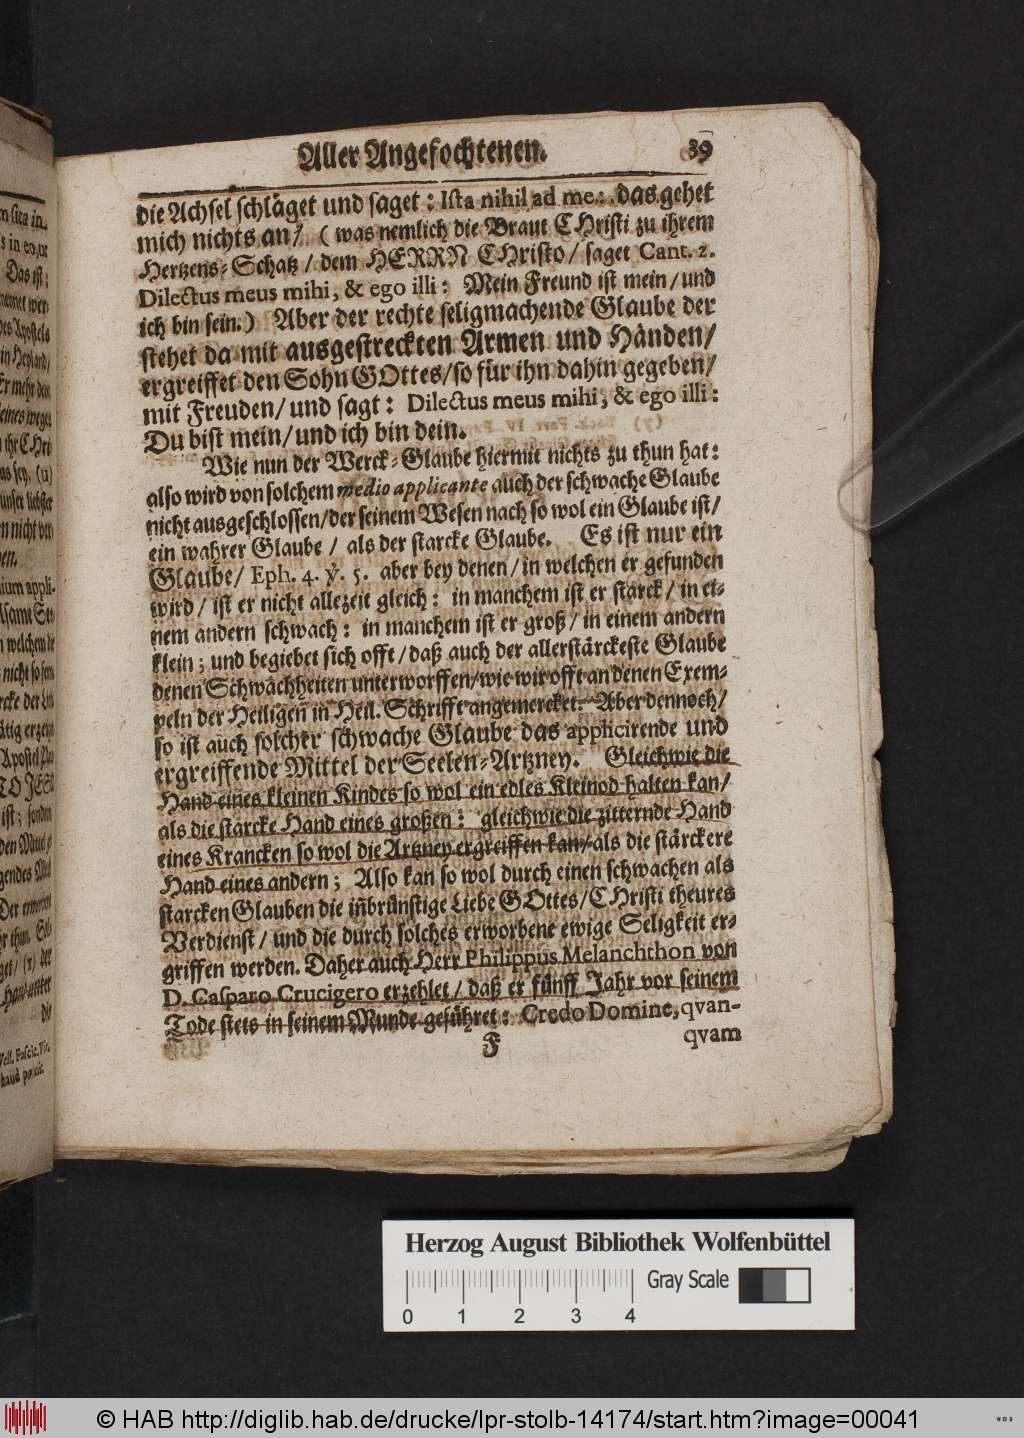 Aller Angefochtenen. 39
die Achsel schläget und saget: Ista nihil ad me: das gehet
mich nichts an/ (was nemlich die Braut CHristi zu ihrem
Hertzens-Schatz/ dem HERRN CHristo/ saget Cant. 2.
Dilectus meus mihi, & ego illi: Mein Freund ist mein/ und
ich bin sein.) Aber der rechte seligmachende Glaube der
stehet da mit ausgestreckten Armen und Händen/
ergreiffet den Sohn GOttes/ so für ihn dahin gegeben/
mit Freuden/ und sagt: Dilectus meus mihi, & ego illi:
Du bist mein/ und ich bin dein.
Wie nun der Werck-Glaube hiermit nichts zu thun hat:
also wird von solchem medio applicante auch der schwache Glaube
nicht ausgeschlossen/ der seinem Wesen nach so wol ein Glaube ist/
ein wahrer Glaube/ als der starcke Glaube. Es ist nur ein
Glaube/ Eph. 4. v. 5. aber bey denen/ in welchen er gefunden
wird/ ist er nicht allezeit gleich: in manchem ist er starck/ in ei-
nem andern schwach: in manchem ist er groß/ in einem andern
klein; und begiebet sich offt/ daß auch der allerstärckeste Glaube
denen Schwachheiten unterworffen/ wie wir offt an denen Exem-
peln der Heiligen in Heil. Schrifft angemercket. Aber dennoch/
so ist auch solcher schwache Glaube das applicirende und
ergreiffende Mittel der Seelen-Artzney. Gleichwie die
Hand eines kleinen Kindes so wol ein edles Kleinod halten kan/
als die starcke Hand eines großen: gleichwie die zitternde Hand
eines Krancken so wol die Artzney ergreiffen kan/ als die stärckere
Hand eines andern; Also kan so wol durch einen schwachen als
starcken Glauben die in̄brünstige Liebe GOttes/ CHristi theures
Verdienst/ und die durch solches erworbene ewige Seligkeit er-
griffen werden. Daher auch Herr Philippus Melanchthon von
D. Casparo Crucigero erzehlet/ daß er fünff Jahr vor seinem
Tode stets in seinem Munde geführet: Credo Domine, qvan-
F qvam
Herzog August Bibliothek Wolfenbüttel
Gray Scale
0 1 2 3 4
© HAB http://diglib.hab.de/drucke/lpr-stolb-14174/start.htm?image=00041